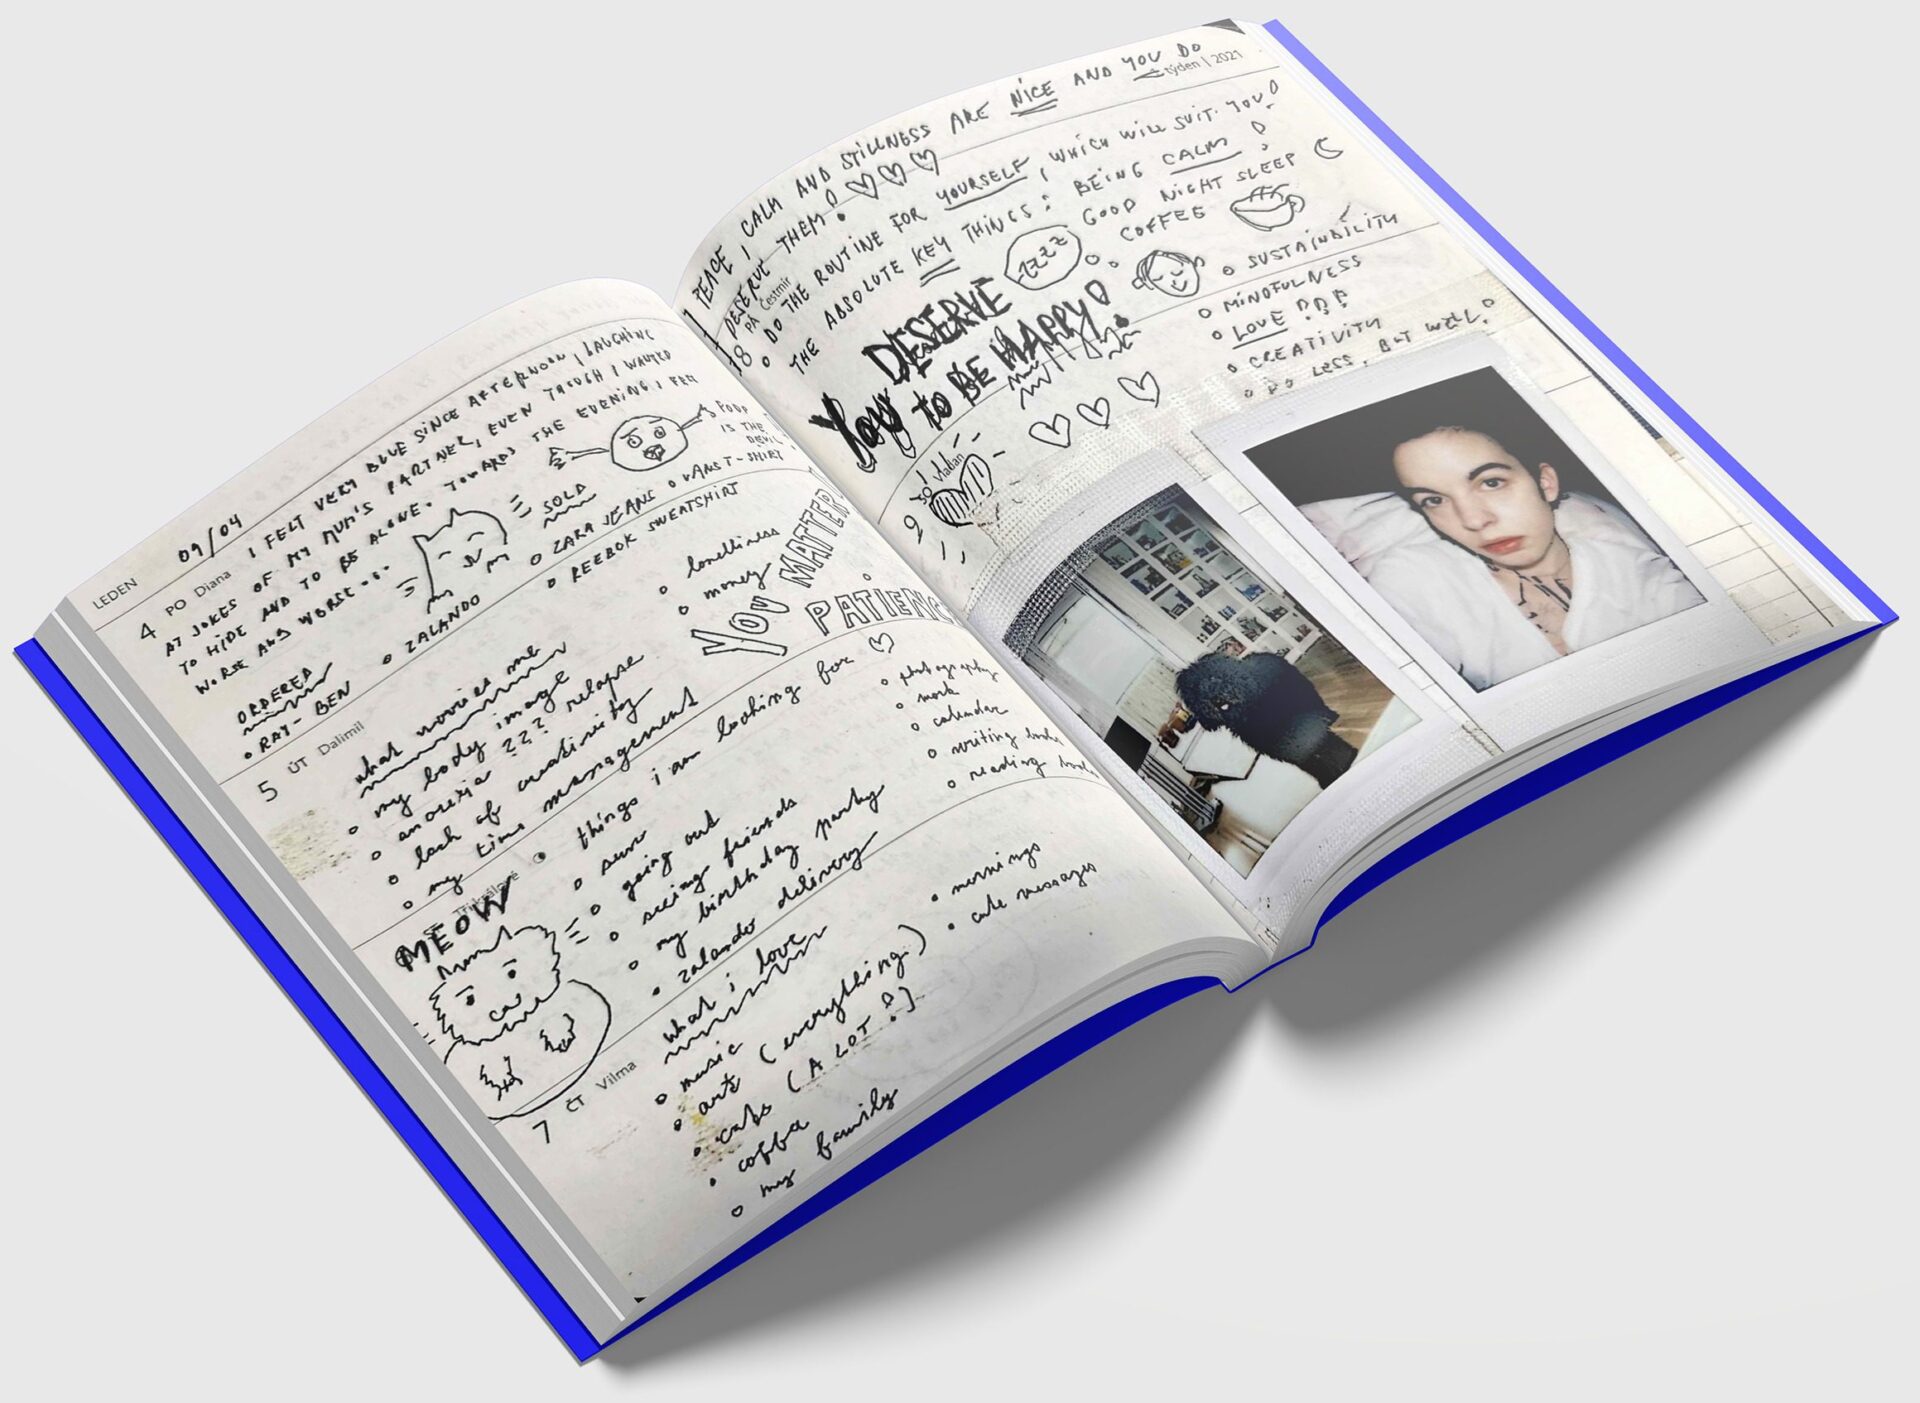 LEDEN
09/04
4 PO Diana
I FELT VERY BLUE SINCE AFTERNOON, LAUGHING
AT JOKES OF MY MUM'S PARTNER, EVEN THOUGH I WANTED
TO HIDE AND TO BE ALONE. TOWARDS THE EVENING I FELT
WORSE AND WORSE...
FOOD
IS THE
DEVIL
ORDERED
• RAY-BEN
• ZALANDO
SOLD
• ZARA JEANS • VANS T-SHIRT
• REEBOK SWEATSHIRT
5 ÚT Dalimil
what worries me
• my body image
• anorexia ??? relapse
• lack of creativity
• my time management
• loneliness
• money
YOU MATTER
PATIENC
things i am looking for ♡
• going out
• seeing friends
• my birthday party
• zalando delivery
• photography
• calendar
• writing
• reading
MEOW
7 ČT Vilma
what i love
• music
• art (everything)
• cats (A LOT!)
• coffee
♡ my family
• mornings
• cute messages
týden | 2021
PEACE, CALM AND STILLNESS ARE NICE AND YOU DO
DESERVE THEM! ♡♡♡
8 PÁ Čestmír
• DO THE ROUTINE FOR YOURSELF, WHICH WILL SUIT YOU!
• THE ABSOLUTE KEY THINGS: BEING CALM!
ZZZZ
GOOD NIGHT SLEEP
COFFEE
• SUSTAINABILITY
• MINDFULNESS
• LOVE !!!
• CREATIVITY
• DO LESS, BUT WELL!
YOU DESERVE
TO BE HAPPY!
♡♡♡
9 SO Vladan